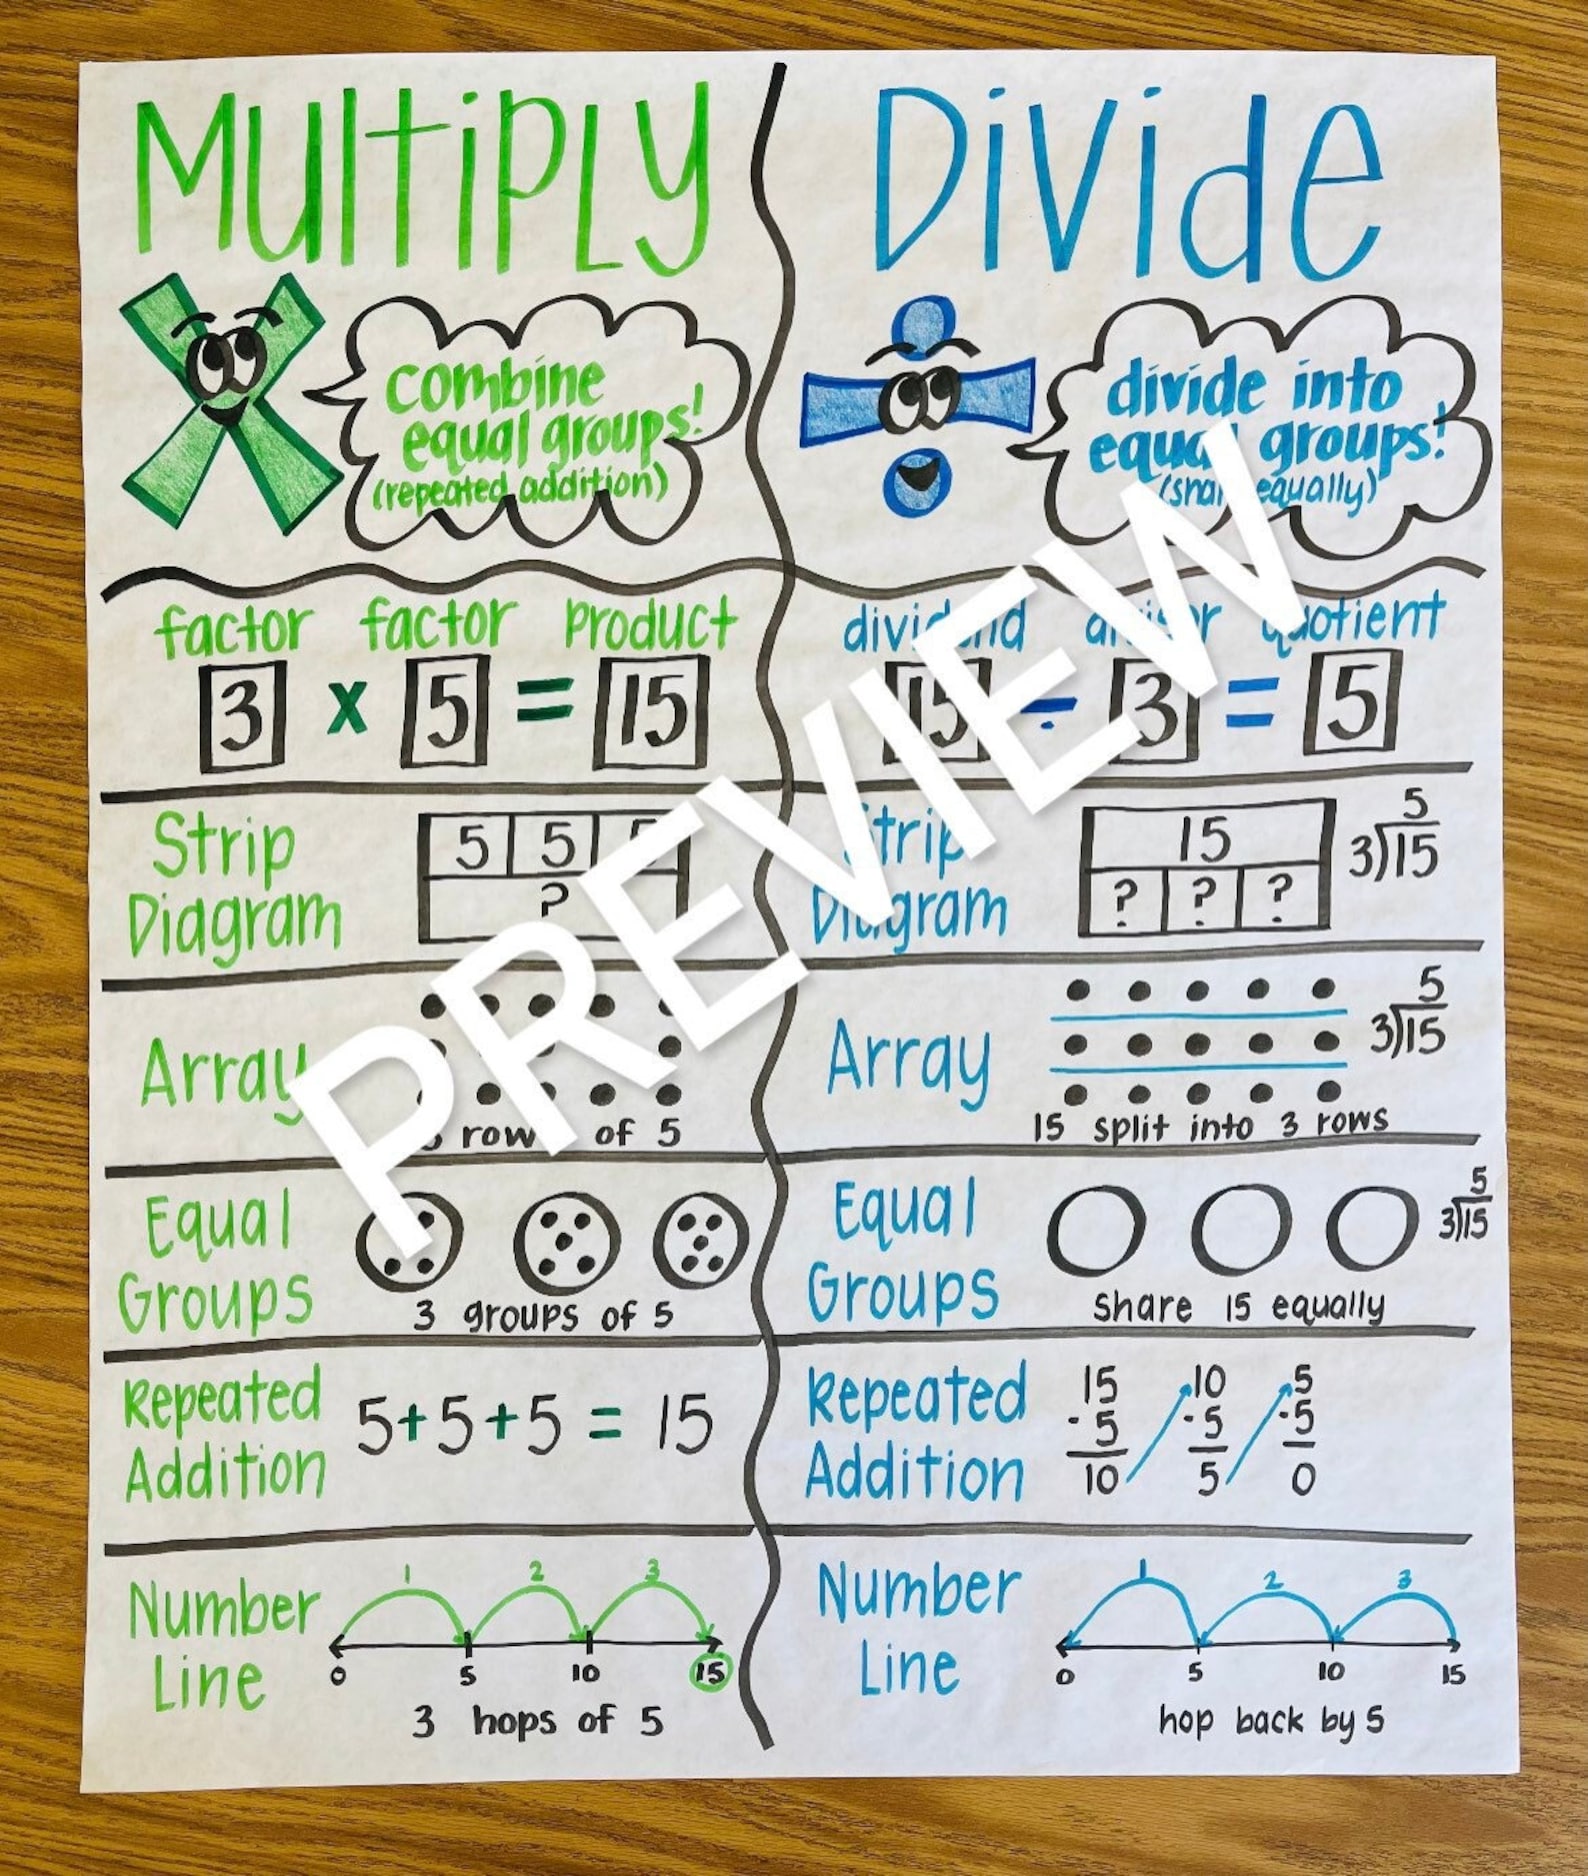 Multiply
Divide
combine
equal groups!
(repeated addition)
divide into
equal groups!
(share equally)
factor factor product
3 x 5 = 15
dividend divisor quotient
15 ÷ 3 = 5
Strip
Diagram
5 5 5
?
Strip
Diagram
15
? ? ?
5
3)15
Array
3 rows of 5
Array
5
3)15
15 split into 3 rows
Equal
Groups
3 groups of 5
Equal
Groups
5
3)15
Share 15 equally
Repeated
Addition
5+5+5 = 15
Repeated
Addition
15 10 5
- 5 -5 -5
10 5 0
Number
Line
1 2 3
0 5 10 15
3 hops of 5
Number
Line
1 2 3
0 5 10 15
hop back by 5
PREVIEW